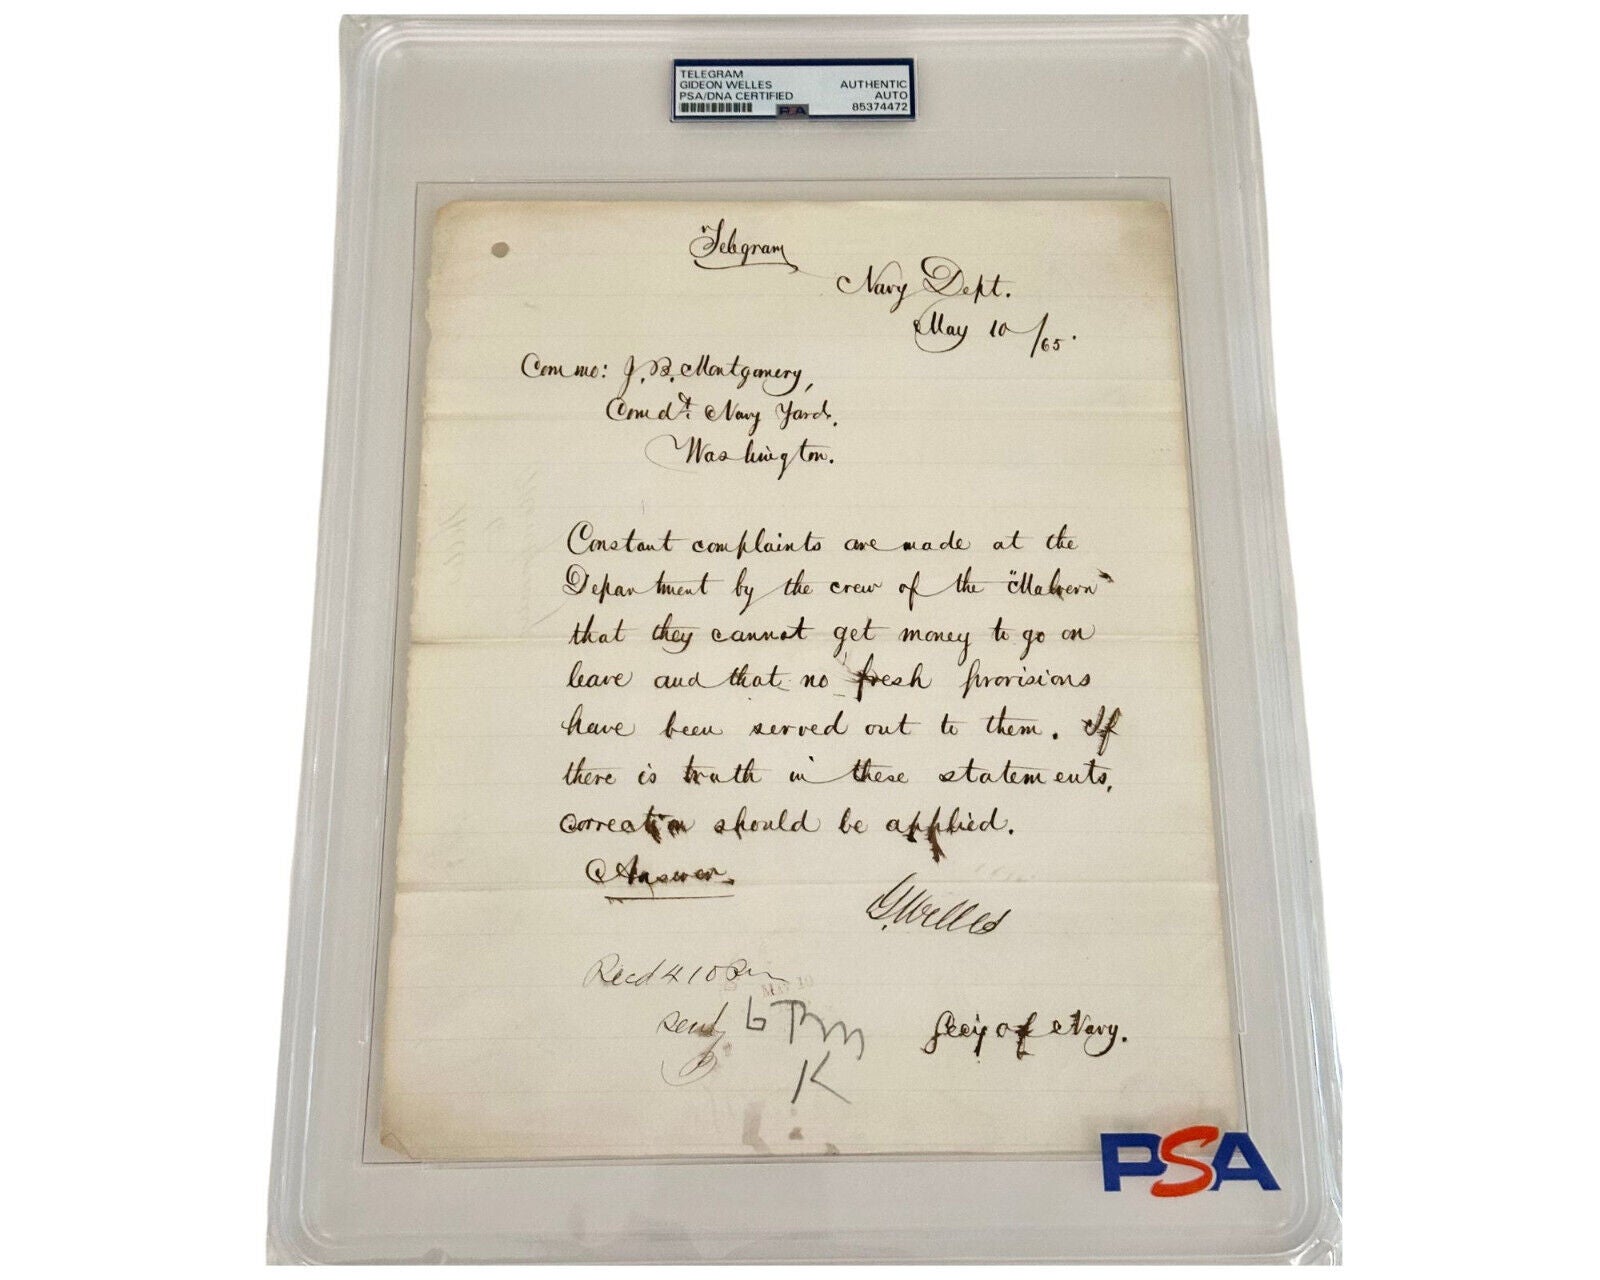 TELEGRAM
GIDEON WELLES
PSA/DNA CERTIFIED
AUTHENTIC
AUTO
85374472
PSA
Telegram
Navy Dept.
May 10/65.
Commo: J. B. Montgomery,
Comdt. Navy Yard,
Washington.
Constant complaints are made at the
Department by the crew of the "Malvern"
that they cannot get money to go on
leave and that no fresh provisions
have been served out to them. If
there is truth in these statements,
correction should be applied.
Answer.
G. Welles
Recd 4 10 Pm
MAY 10
Sent 6 Pm
K
Secy of Navy.
PSA